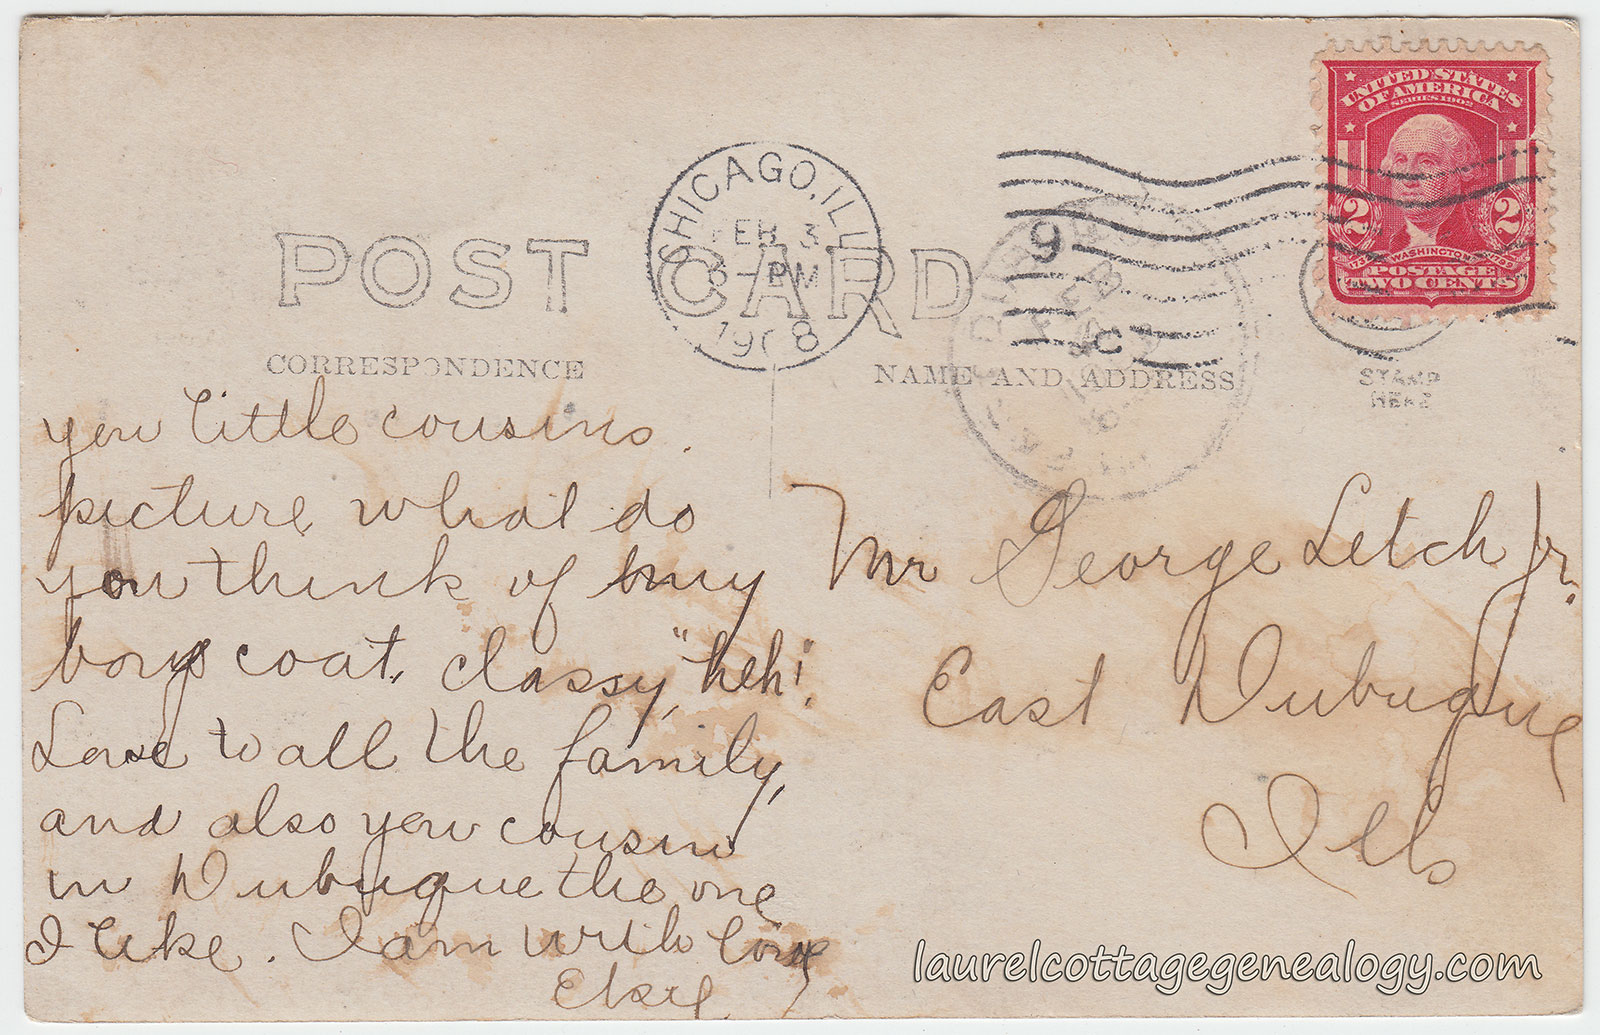 UNITED STATES
OF AMERICA
SERIES 1902
2 2
WASHINGTON
POSTAGE
TWO CENTS
CHICAGO, ILL
FEB 3
6-PM
1908
9
C
POST CARD
CORRESPONDENCE
NAME AND ADDRESS
STAMP
HERE
you little cousins.
picture what do
you think of my
boys coat, classy, "heh!"
Love to all the family,
and also you cousin
in Dubuque the one
I like. I am with love
Elsie
Mr George Letch Jr.
East Dubuque
Ills
laurelcottagegenealogy.com